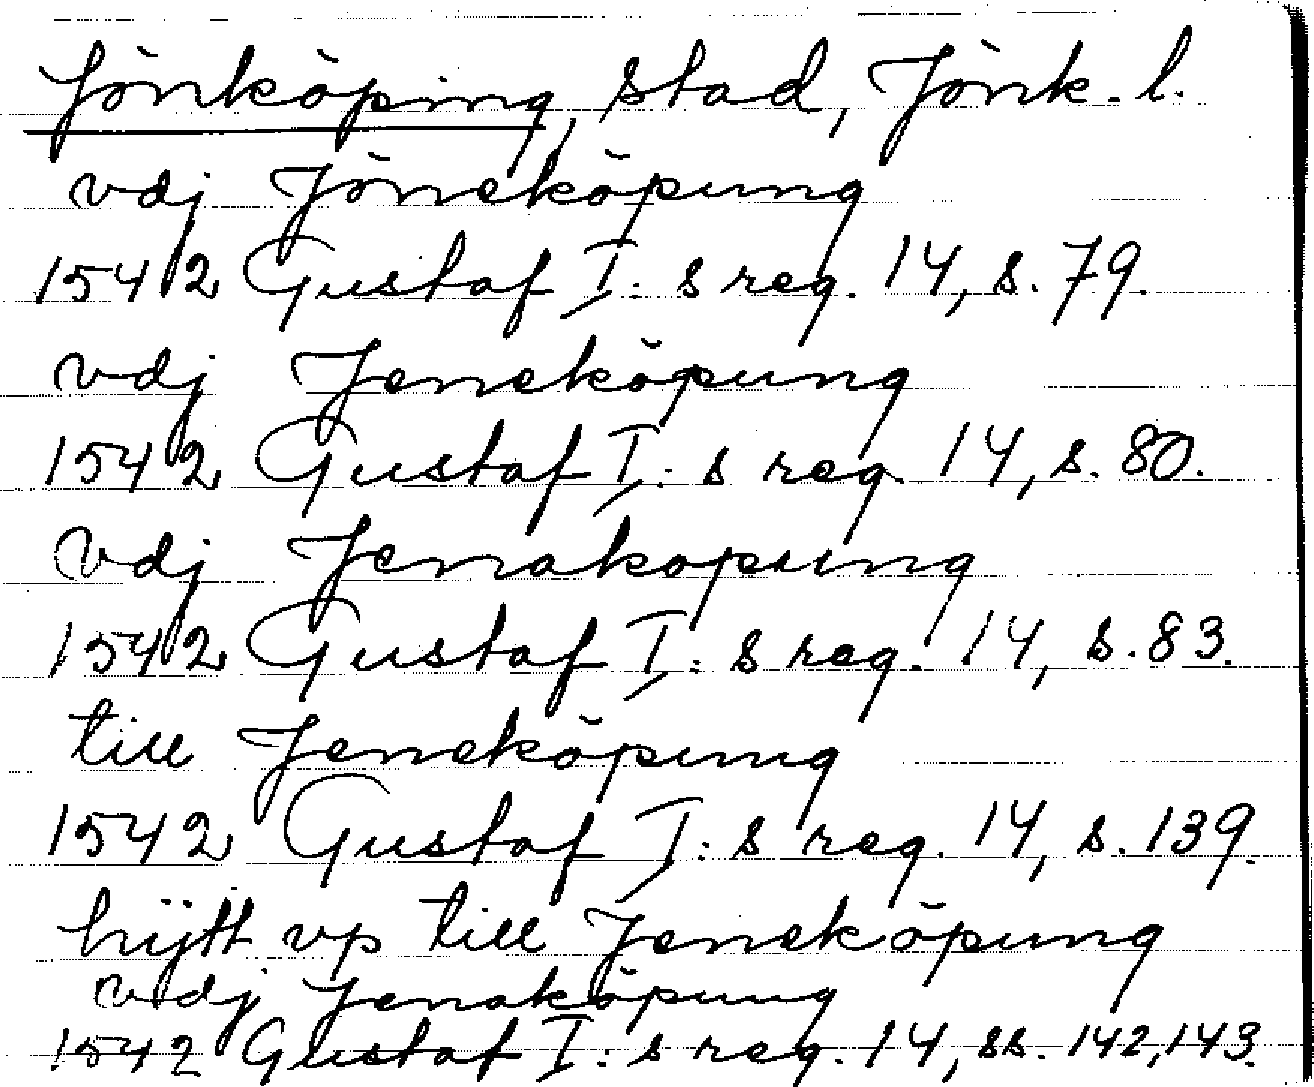 Jönköping, stad, Jönk. l.
vdj Jöneköpung
1542 Gustaf I: s reg. 14, s. 79.
vdj Jeneköpung
1542 Gustaf I: s reg. 14, s. 80.
vdj Jenakopung
1542 Gustaf I: s reg. 14, s. 83.
till Jeneköpung
1542 Gustaf I: s reg. 14, s. 139.
hijtt vp till Jeneköpung
vdj Jenaköpung
1542 Gustaf I: s reg. 14, ss. 142, 143.